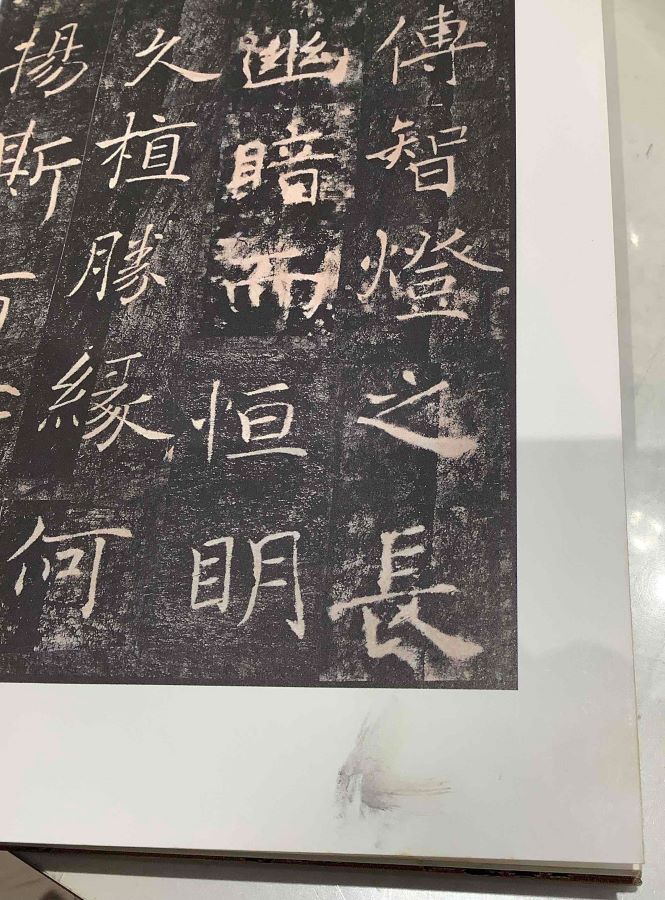 傳智燈之長
幽暗而恒眀
久植勝緣何
揚斯